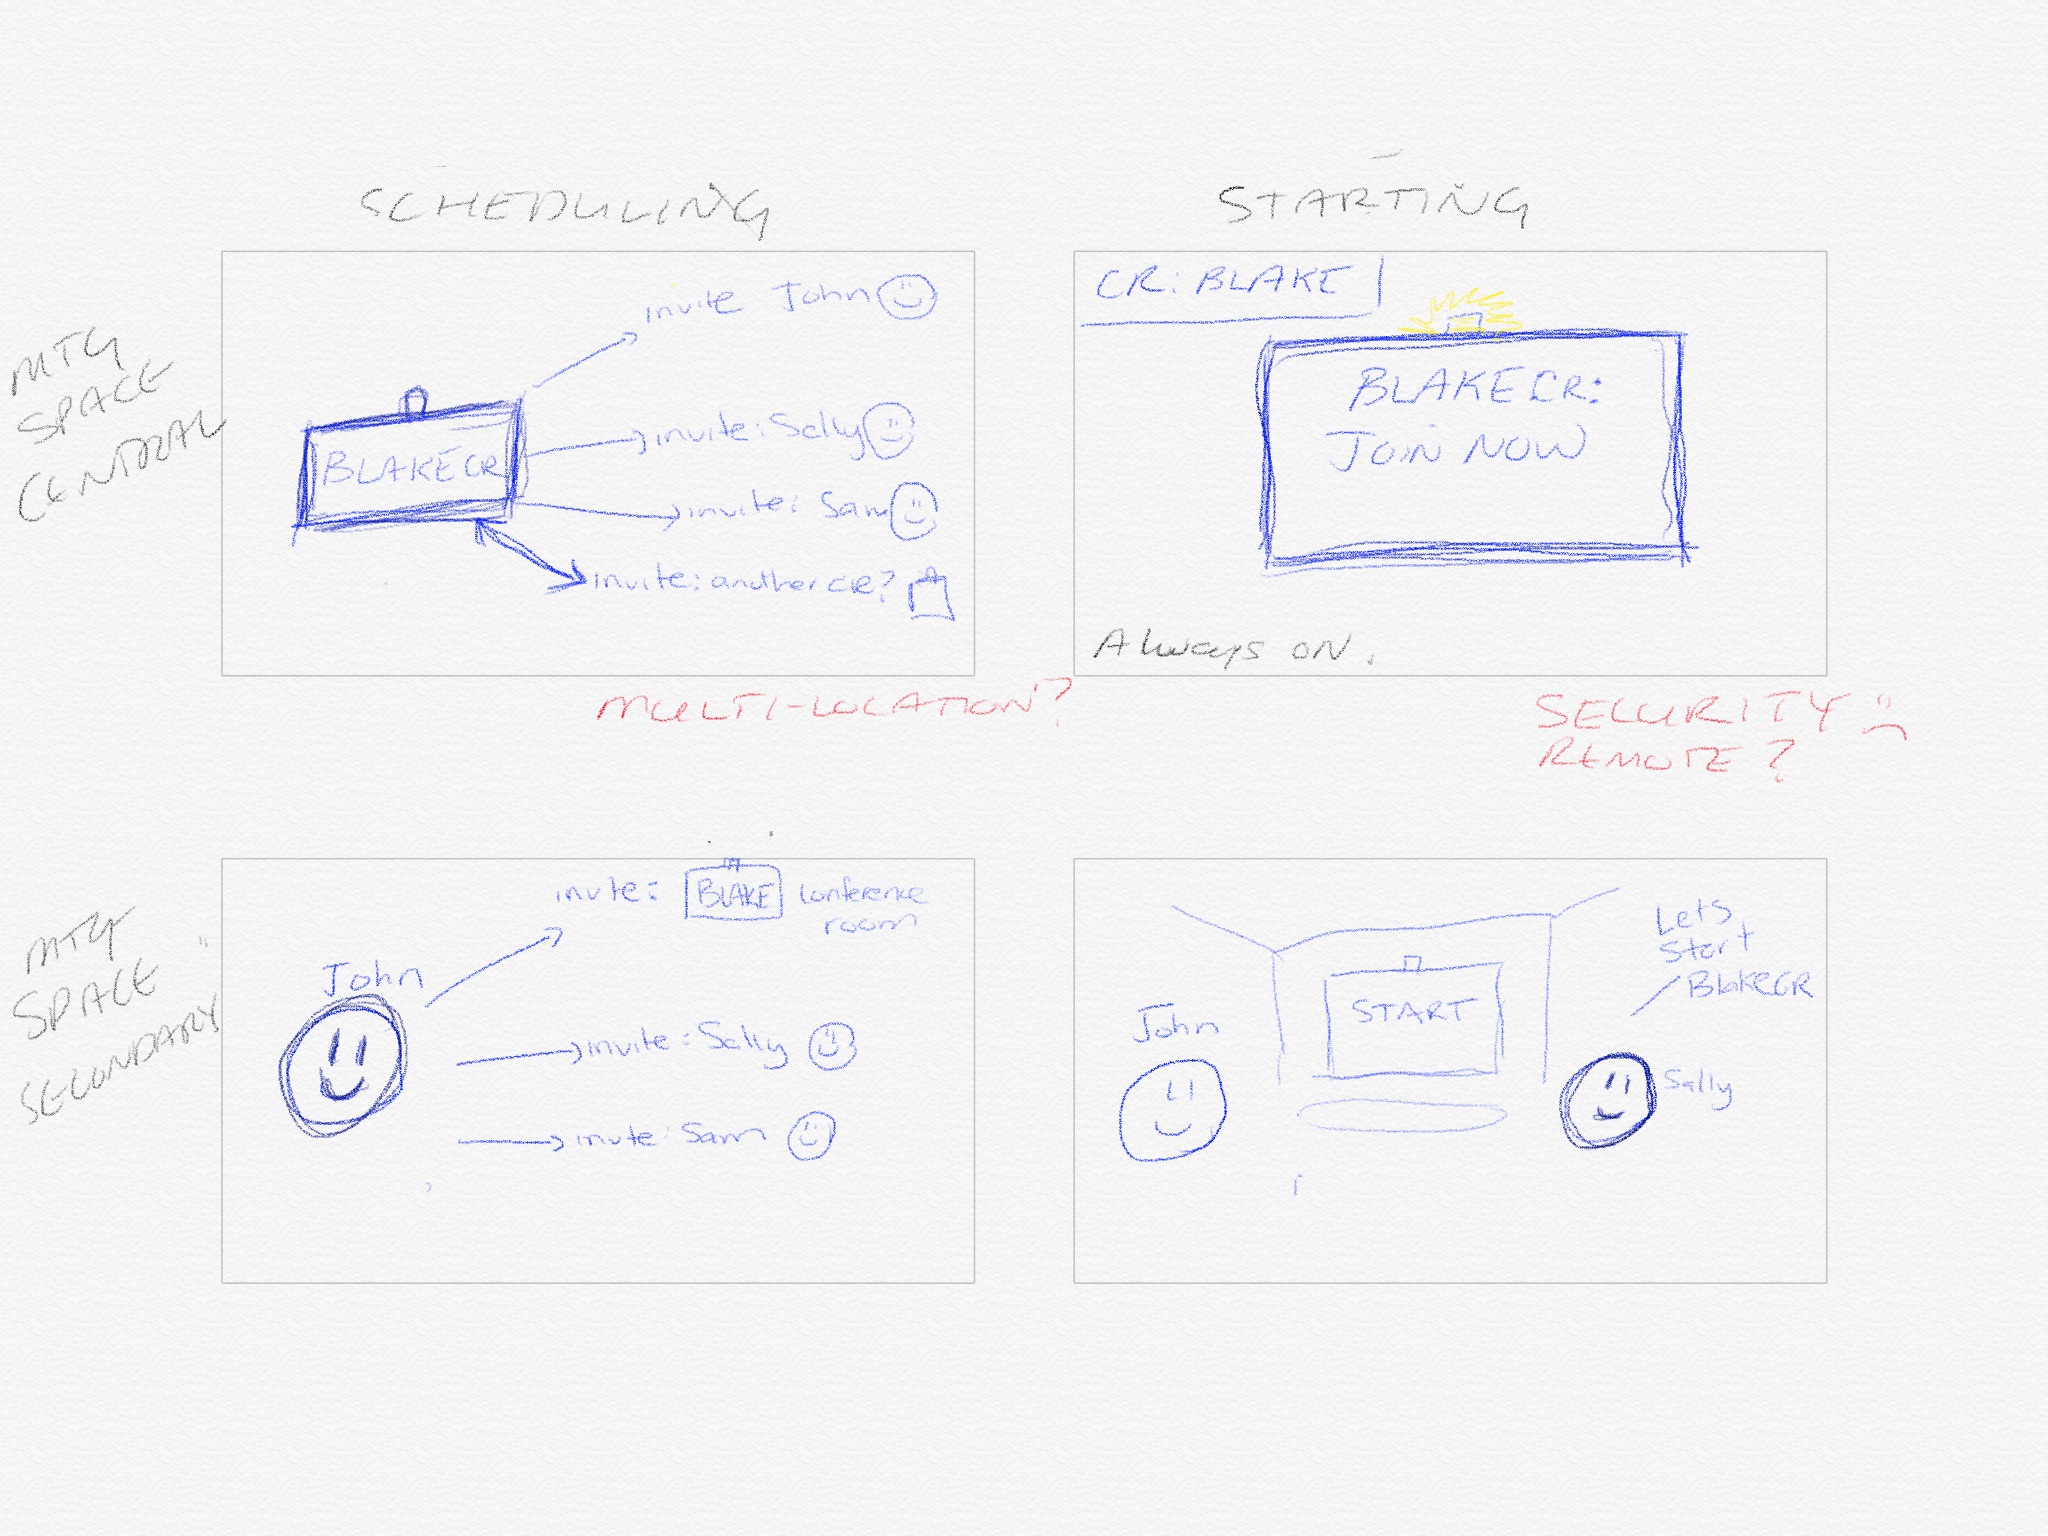 SCHEDULING
STARTING
MTG
SPACE
CENTRAL
invite John
invite: Sally
BLAKE CR
invite: Sam
invite: another CR?
CR: BLAKE
BLAKE CR:
JOIN NOW
Always on.
MULTI-LOCATION?
SECURITY
REMOTE?
MTG
SPACE
SECONDARY
invite: BLAKE conference
room
John
invite: Sally
invite: Sam
Lets
Start
BlakeCR
START
John
Sally